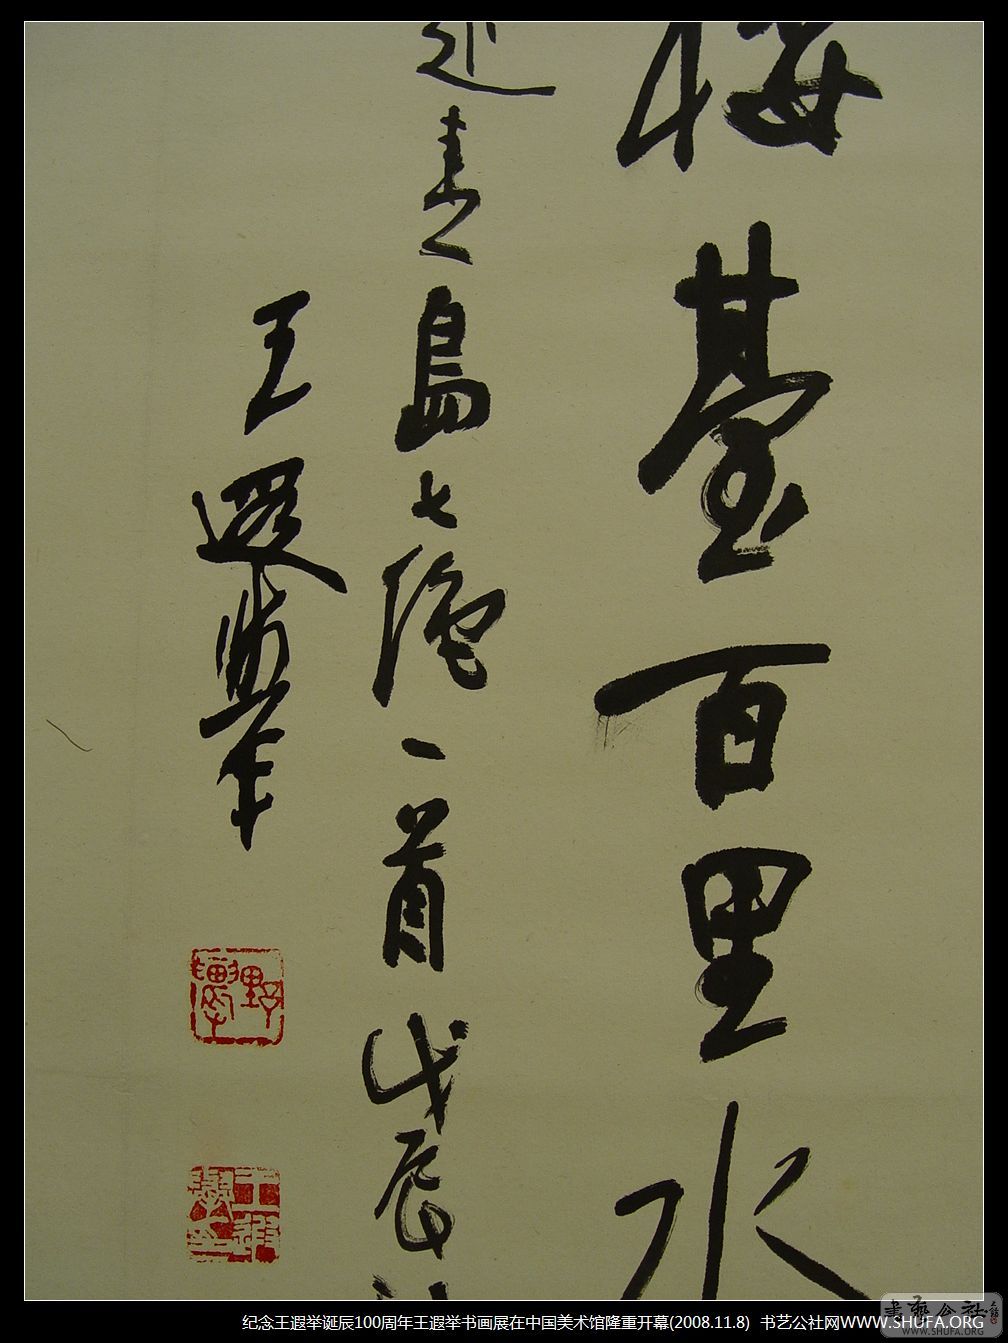 樓臺百里水
青島七絕一首戊辰
王遐舉
王遐舉
纪念王遐举诞辰100周年王遐举书画展在中国美术馆隆重开幕(2008.11.8) 书艺公社网WWW.SHUFA.ORG
書藝公社
WWW.SHUFA.ORG